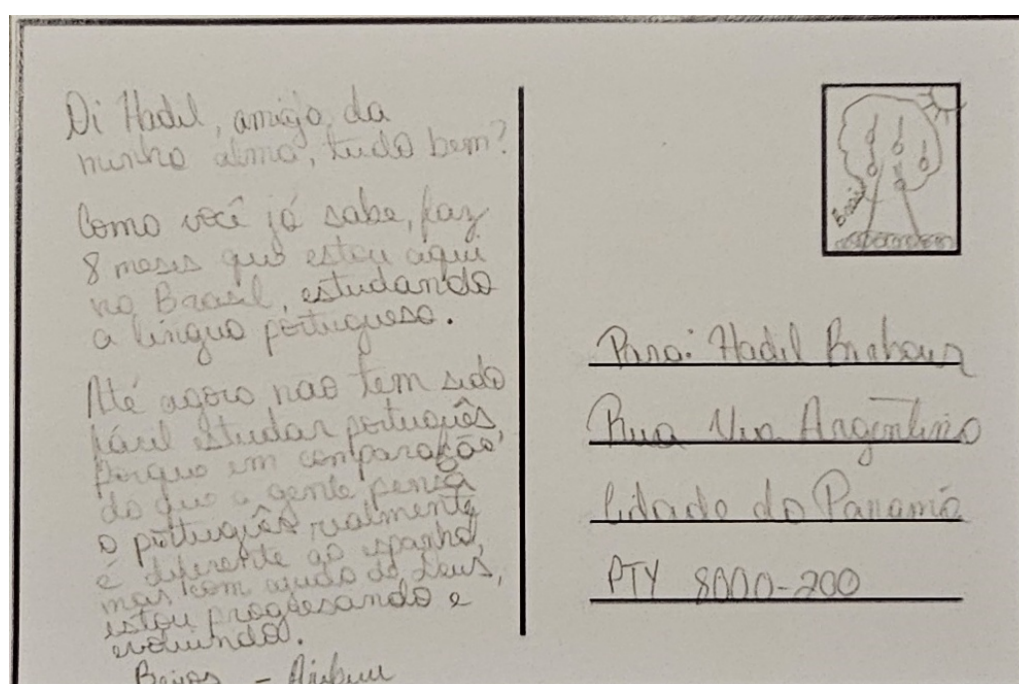 Oi Hadil, amigo da
minha alma, tudo bem?
Como você já sabe, faz
8 meses que estou aqui
no Brasil, estudando
a língua portuguesa.
Até agora não tem sido
fácil estudar português,
porque em comparação
do que a gente pensa
o português realmente
é diferente ao espanhol,
mas com ajuda de Deus,
estou progresando e
evoluindo.
Beijos -
Brasil
Para: Hadil
Rua Via Argentina
Cidade do Panamá
PTY 8000-200